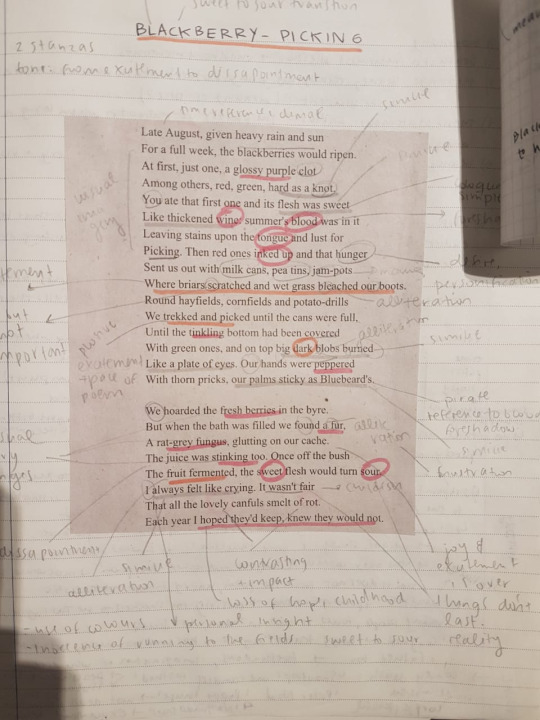 sweet to sour transition
BLACKBERRY-PICKING
2 stanzas
tone: from exutement to dissapointment
time reference: 
simile
Late August, given heavy rain and sun
For a full week, the blackberries would ripen.
At first, just one, a glossy purple clot
Among others, red, green, hard as a knot.
You ate that first one and its flesh was sweet
Like thickened wine: summer's blood was in it
Leaving stains upon the tongue and lust for
Picking. Then red ones inked up and that hunger
Sent us out with milk cans, pea tins, jam-pots
Where briars scratched and wet grass bleached our boots.
Round hayfields, cornfields and potato-drills
We trekked and picked until the cans were full,
Until the tinkling bottom had been covered
With green ones, and on top big dark blobs burned
Like a plate of eyes. Our hands were peppered
With thorn pricks, our palms sticky as Bluebeard's.
We hoarded the fresh berries in the byre.
But when the bath was filled we found a fur,
A rat-grey fungus, glutting on our cache.
The juice was stinking too. Once off the bush
The fruit fermented, the sweet flesh would turn sour.
I always felt like crying. It wasn't fair
That all the lovely canfuls smelt of rot.
Each year I hoped they'd keep, knew they would not.
visual
imagery
desire
personification
alliteration
alliteration
simile
positive
exutement
pace of
poem
pirate
reference to
foreshadow
allite
ration
simile
frustration
childish
dissapointment
simile
alliteration
contrasting
+ impact
loss of hope, childhood
joy &
exutement
is over
things dont
last.
reality
- use of colours
personal insight
- inocence of running to the fields
sweet to sour